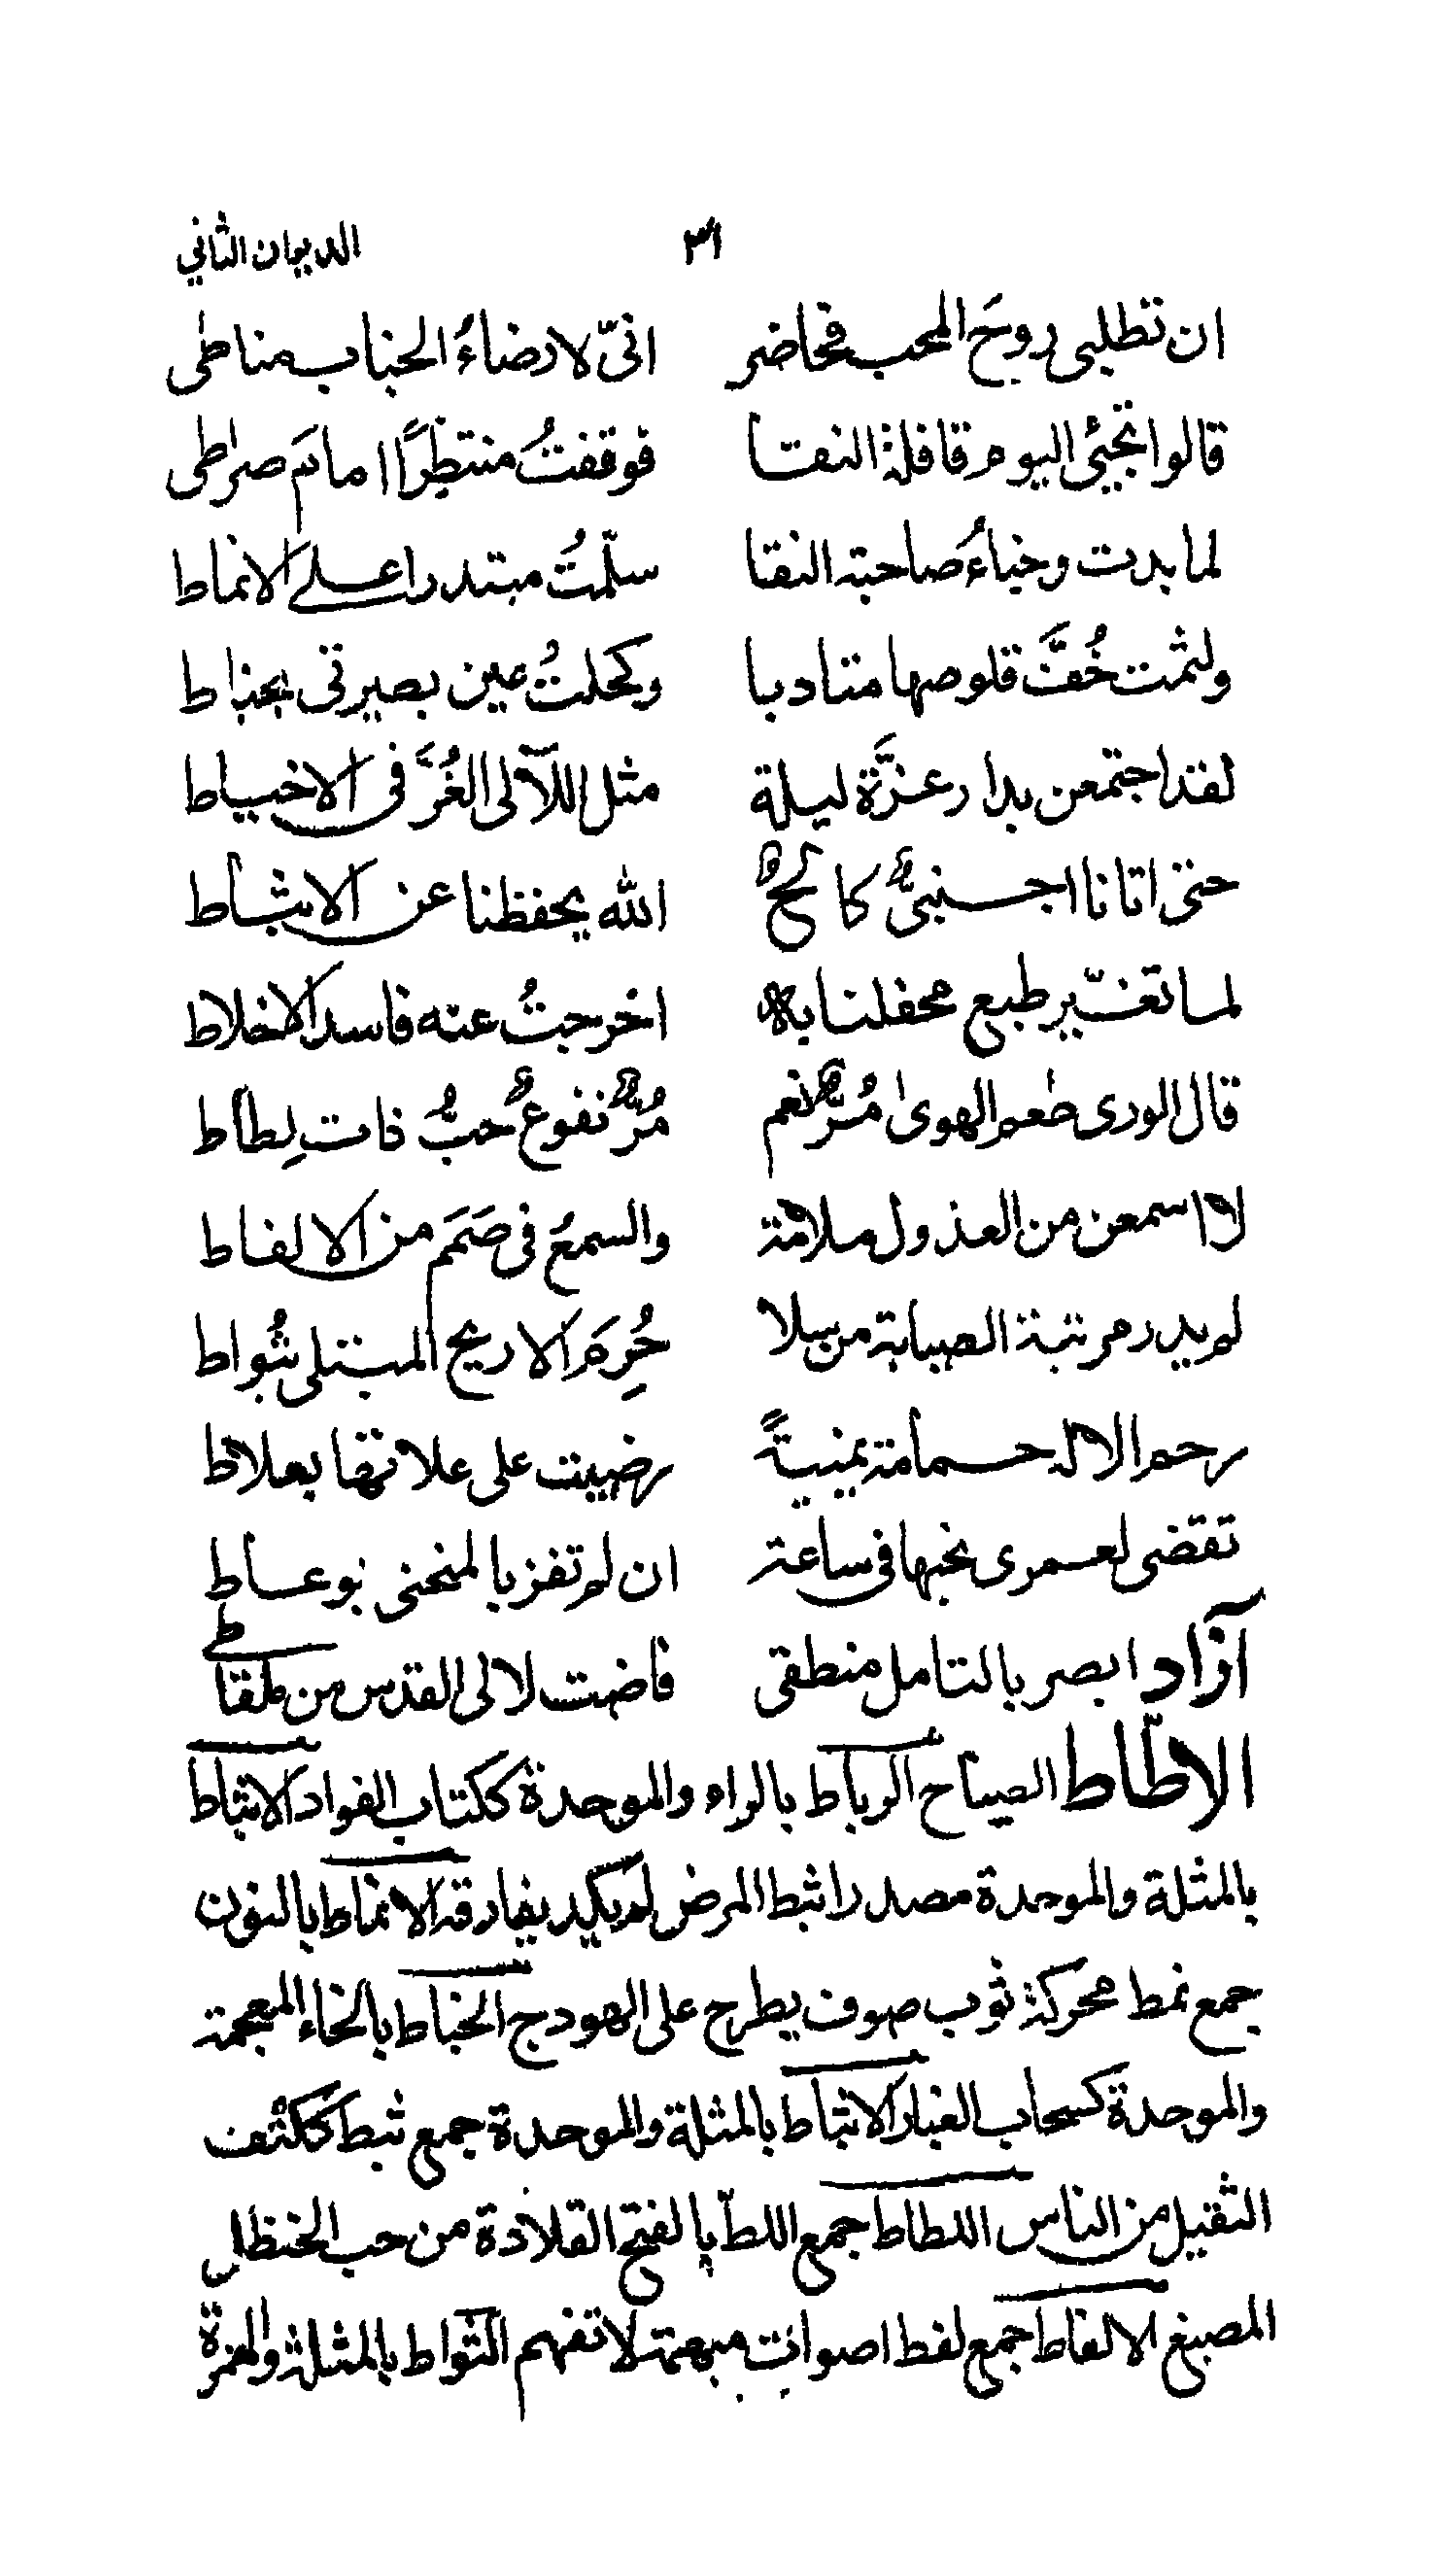 ٣١ الديوان الثاني
ان تطلبى روحَ المحب فحاضر انىّ لارضاءُ الجناب مناطى
قالوا تجيئ اليوم قافلة النقا فوقفتُ منتظِرًا امامَ صراطى
لما بدت وخباءُ صاحبة النقا سلّمتُ مبتدرا على الانماط
ولثمت خُفَّ قلوصها متادبا وكحلتُ عين بصيرتى بخباط
لقد اجتمعن بدار عزَّة ليلة مثل اللآلى الغُرَّ فى الاخياط
حتى اتانا اجنبىٌّ كالحٌ الله يحفظنا عن الاثباط
لما تغيّر طبع محفلنا به اخرجتُ عنه فاسد الاخلاط
قال الورى طعم الهوى مُرٌّ نعم مُرٌّ نفوعٌ حبُّ ذات لِطاط
لا اسمعن من العذول ملامة والسمعُ فى صَمَم من الالغاط
لم يدر مرتبة الصبابة من سلا حُرِمَ الاريح المبتلى بثُواط
رحم الاله حمامة يمنيةً رضيت على علاتها بعلاط
تقضى لعمرى نحبها فى ساعة ان لم تفز بالمنحنى بوعاط
آزاد ابصر بالتامل منطقى فاضت لالى القدس من ملقاطى
الاطّاط الصياح الرباط بالراء والموحدة ككتاب الفواد الاثباط
بالمثلة والموحدة مصدر اثبط المرض لم يكد يفارقه الانماط بالنون
جمع نمط محركة ثوب صوف يطرح على الهودج الخباط بالخاء المعجمة
والموحدة كسحاب الغبار الاثباط بالمثلة والموحدة جمع ثبط ككتف
الثقيل من الناس اللطاط جمع اللطّ بالفتح القلادة من حب الحنظل
المصبغ الالغاط جمع لغط اصوات مبهمة لا تفهم الثواط بالمثلة والهمزة